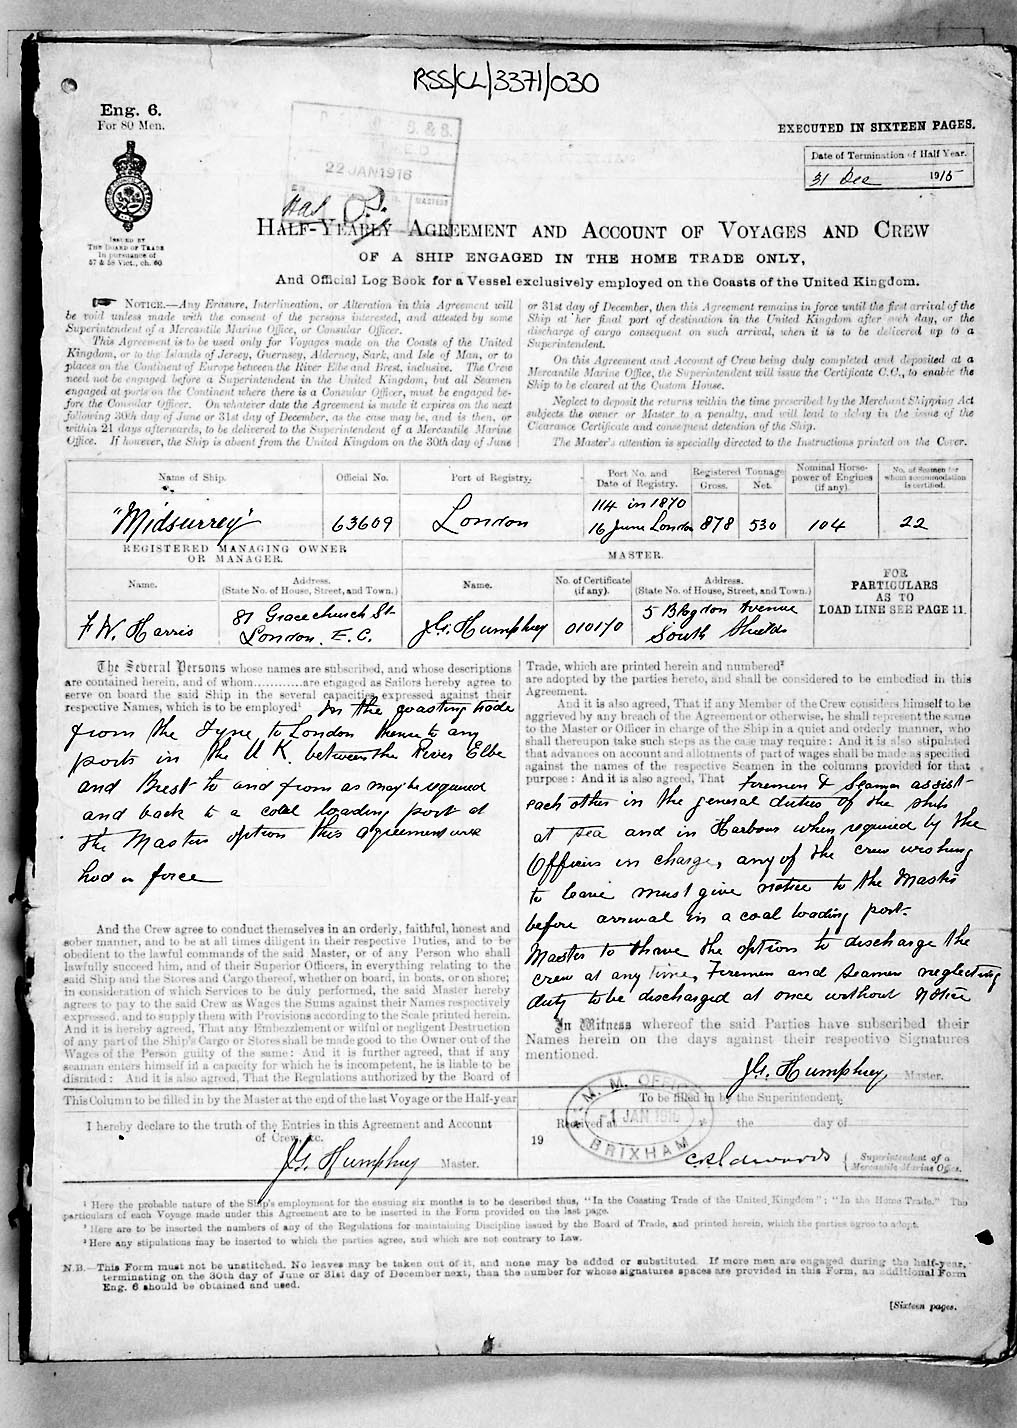 RSS/CL/3371/030
Eng. 6.
For 80 Men.
EXECUTED IN SIXTEEN PAGES.
Date of Termination of Half Year.
31 Dec 1915
22 JAN 1916
ISSUED BY
THE BOARD OF TRADE
In pursuance of
57 & 58 Vict., ch. 60
HALF-YEARLY AGREEMENT AND ACCOUNT OF VOYAGES AND CREW
OF A SHIP ENGAGED IN THE HOME TRADE ONLY,
And Official Log Book for a Vessel exclusively employed on the Coasts of the United Kingdom.
NOTICE.—Any Erasure, Interlineation, or Alteration in this Agreement will
be void unless made with the consent of the persons interested, and attested by some
Superintendent of a Mercantile Marine Office, or Consular Officer.
This Agreement is to be used only for Voyages made on the Coasts of the United
Kingdom, or to the Islands of Jersey, Guernsey, Alderney, Sark, and Isle of Man, or to
places on the Continent of Europe between the River Elbe and Brest, inclusive. The Crew
need not be engaged before a Superintendent in the United Kingdom, but all Seamen
engaged at ports on the Continent where there is a Consular Officer, must be engaged be-
fore the Consular Officer. On whatever date the Agreement is made it expires on the next
following 30th day of June or 31st day of December, as the case may be, and is then, or
within 21 days afterwards, to be delivered to the Superintendent of a Mercantile Marine
Office. If however, the Ship is absent from the United Kingdom on the 30th day of June
or 31st day of December, then this Agreement remains in force until the first arrival of the
Ship at her final port of destination in the United Kingdom after such day, or the
discharge of cargo consequent on such arrival, when it is to be delivered up to a
Superintendent.
On this Agreement and Account of Crew being duly completed and deposited at a
Mercantile Marine Office, the Superintendent will issue the Certificate C.C., to enable the
Ship to be cleared at the Custom House.
Neglect to deposit the returns within the time prescribed by the Merchant Shipping Act
subjects the owner or Master to a penalty, and will lead to delay in the issue of the
Clearance Certificate and consequent detention of the Ship.
The Master's attention is specially directed to the Instructions printed on the Cover.
Name of Ship. Official No. Port of Registry. Port No. and Date of Registry. Registered Tonnage Gross. Net. Nominal Horse-power of Engines (if any). No. of Seamen for whom accommodation is certified.
"Midsurrey" 63609 London 114 in 1870 16 June London 878 530 104 22
REGISTERED MANAGING OWNER
OR MANAGER.
MASTER.
Name. Address. (State No. of House, Street, and Town.) Name. No. of Certificate (if any). Address. (State No. of House, Street, and Town.)
FOR
PARTICULARS
AS TO
LOAD LINE SEE PAGE 11.
F W. Harris 81 Gracechurch St London. E.C. J.G. Humphrey 010170 5 Avenue South Shields
The Several Persons whose names are subscribed, and whose descriptions
are contained herein, and of whom............are engaged as Sailors hereby agree to
serve on board the said Ship in the several capacities expressed against their
respective Names, which is to be employed¹ In the coasting trade
from the Tyne to London thence to any
ports in the U K. between the River Elbe
and Brest to and from as may be required
and back to a coal loading port at
the Masters option this agreement
in force
And the Crew agree to conduct themselves in an orderly, faithful, honest and
sober manner, and to be at all times diligent in their respective Duties, and to be
obedient to the lawful commands of the said Master, or of any Person who shall
lawfully succeed him, and of their Superior Officers, in everything relating to the
said Ship and the Stores and Cargo thereof, whether on board, in boats, or on shore;
in consideration of which Services to be duly performed, the said Master hereby
agrees to pay to the said Crew as Wages the Sums against their Names respectively
expressed, and to supply them with Provisions according to the Scale printed herein.
And it is hereby agreed, That any Embezzlement or wilful or negligent Destruction
of any part of the Ship's Cargo or Stores shall be made good to the Owner out of the
Wages of the Person guilty of the same: And it is further agreed, that if any
seaman enters himself in a capacity for which he is incompetent, he is liable to be
disrated: And it is also agreed, That the Regulations authorized by the Board of
Trade, which are printed herein and numbered²
are adopted by the parties hereto, and shall be considered to be embodied in this
Agreement.
And it is also agreed, That if any Member of the Crew considers himself to be
aggrieved by any breach of the Agreement or otherwise, he shall represent the same
to the Master or Officer in charge of the Ship in a quiet and orderly manner, who
shall thereupon take such steps as the case may require: And it is also stipulated
that advances on account and allotments of part of wages shall be made as specified
against the names of the respective Seamen in the columns provided for that
purpose: And it is also agreed, That Firemen & Seamen assist
each other in the general duties of the ship
at sea and in Harbour when required by the
Officers in charge, any of the crew wishing
to leave must give notice to the Master
before arrival in a coal loading port.
Master to have the option to discharge the
crew at any time, Firemen and Seamen neglecting
duty to be discharged at once without notice
In Witness whereof the said Parties have subscribed their
Names herein on the days against their respective Signatures
mentioned.
J.G. Humphrey Master.
This Column to be filled in by the Master at the end of the last Voyage or the Half-year
I hereby declare to the truth of the Entries in this Agreement and Account
of Crew, &c.
J.G. Humphrey Master.
To be filled in by the Superintendent.
Received at the day of
19
M. M. OFFICE
1 JAN 1916
BRIXHAM
Superintendent of a
Mercantile Marine Office.
¹ Here the probable nature of the Ship's employment for the ensuing six months is to be described thus, "In the Coasting Trade of the United Kingdom"; "In the Home Trade." The
particulars of each Voyage made under this Agreement are to be inserted in the Form provided on the last page.
² Here are to be inserted the numbers of any of the Regulations for maintaining Discipline issued by the Board of Trade, and printed herein, which the parties agree to adopt.
³ Here any stipulations may be inserted to which the parties agree, and which are not contrary to Law.
N.B.—This Form must not be unstitched. No leaves may be taken out of it, and none may be added or substituted. If more men are engaged during the half-year,
terminating on the 30th day of June or 31st day of December next, than the number for whose signatures spaces are provided in this Form, an additional Form
Eng. 6 should be obtained and used.
[Sixteen pages.